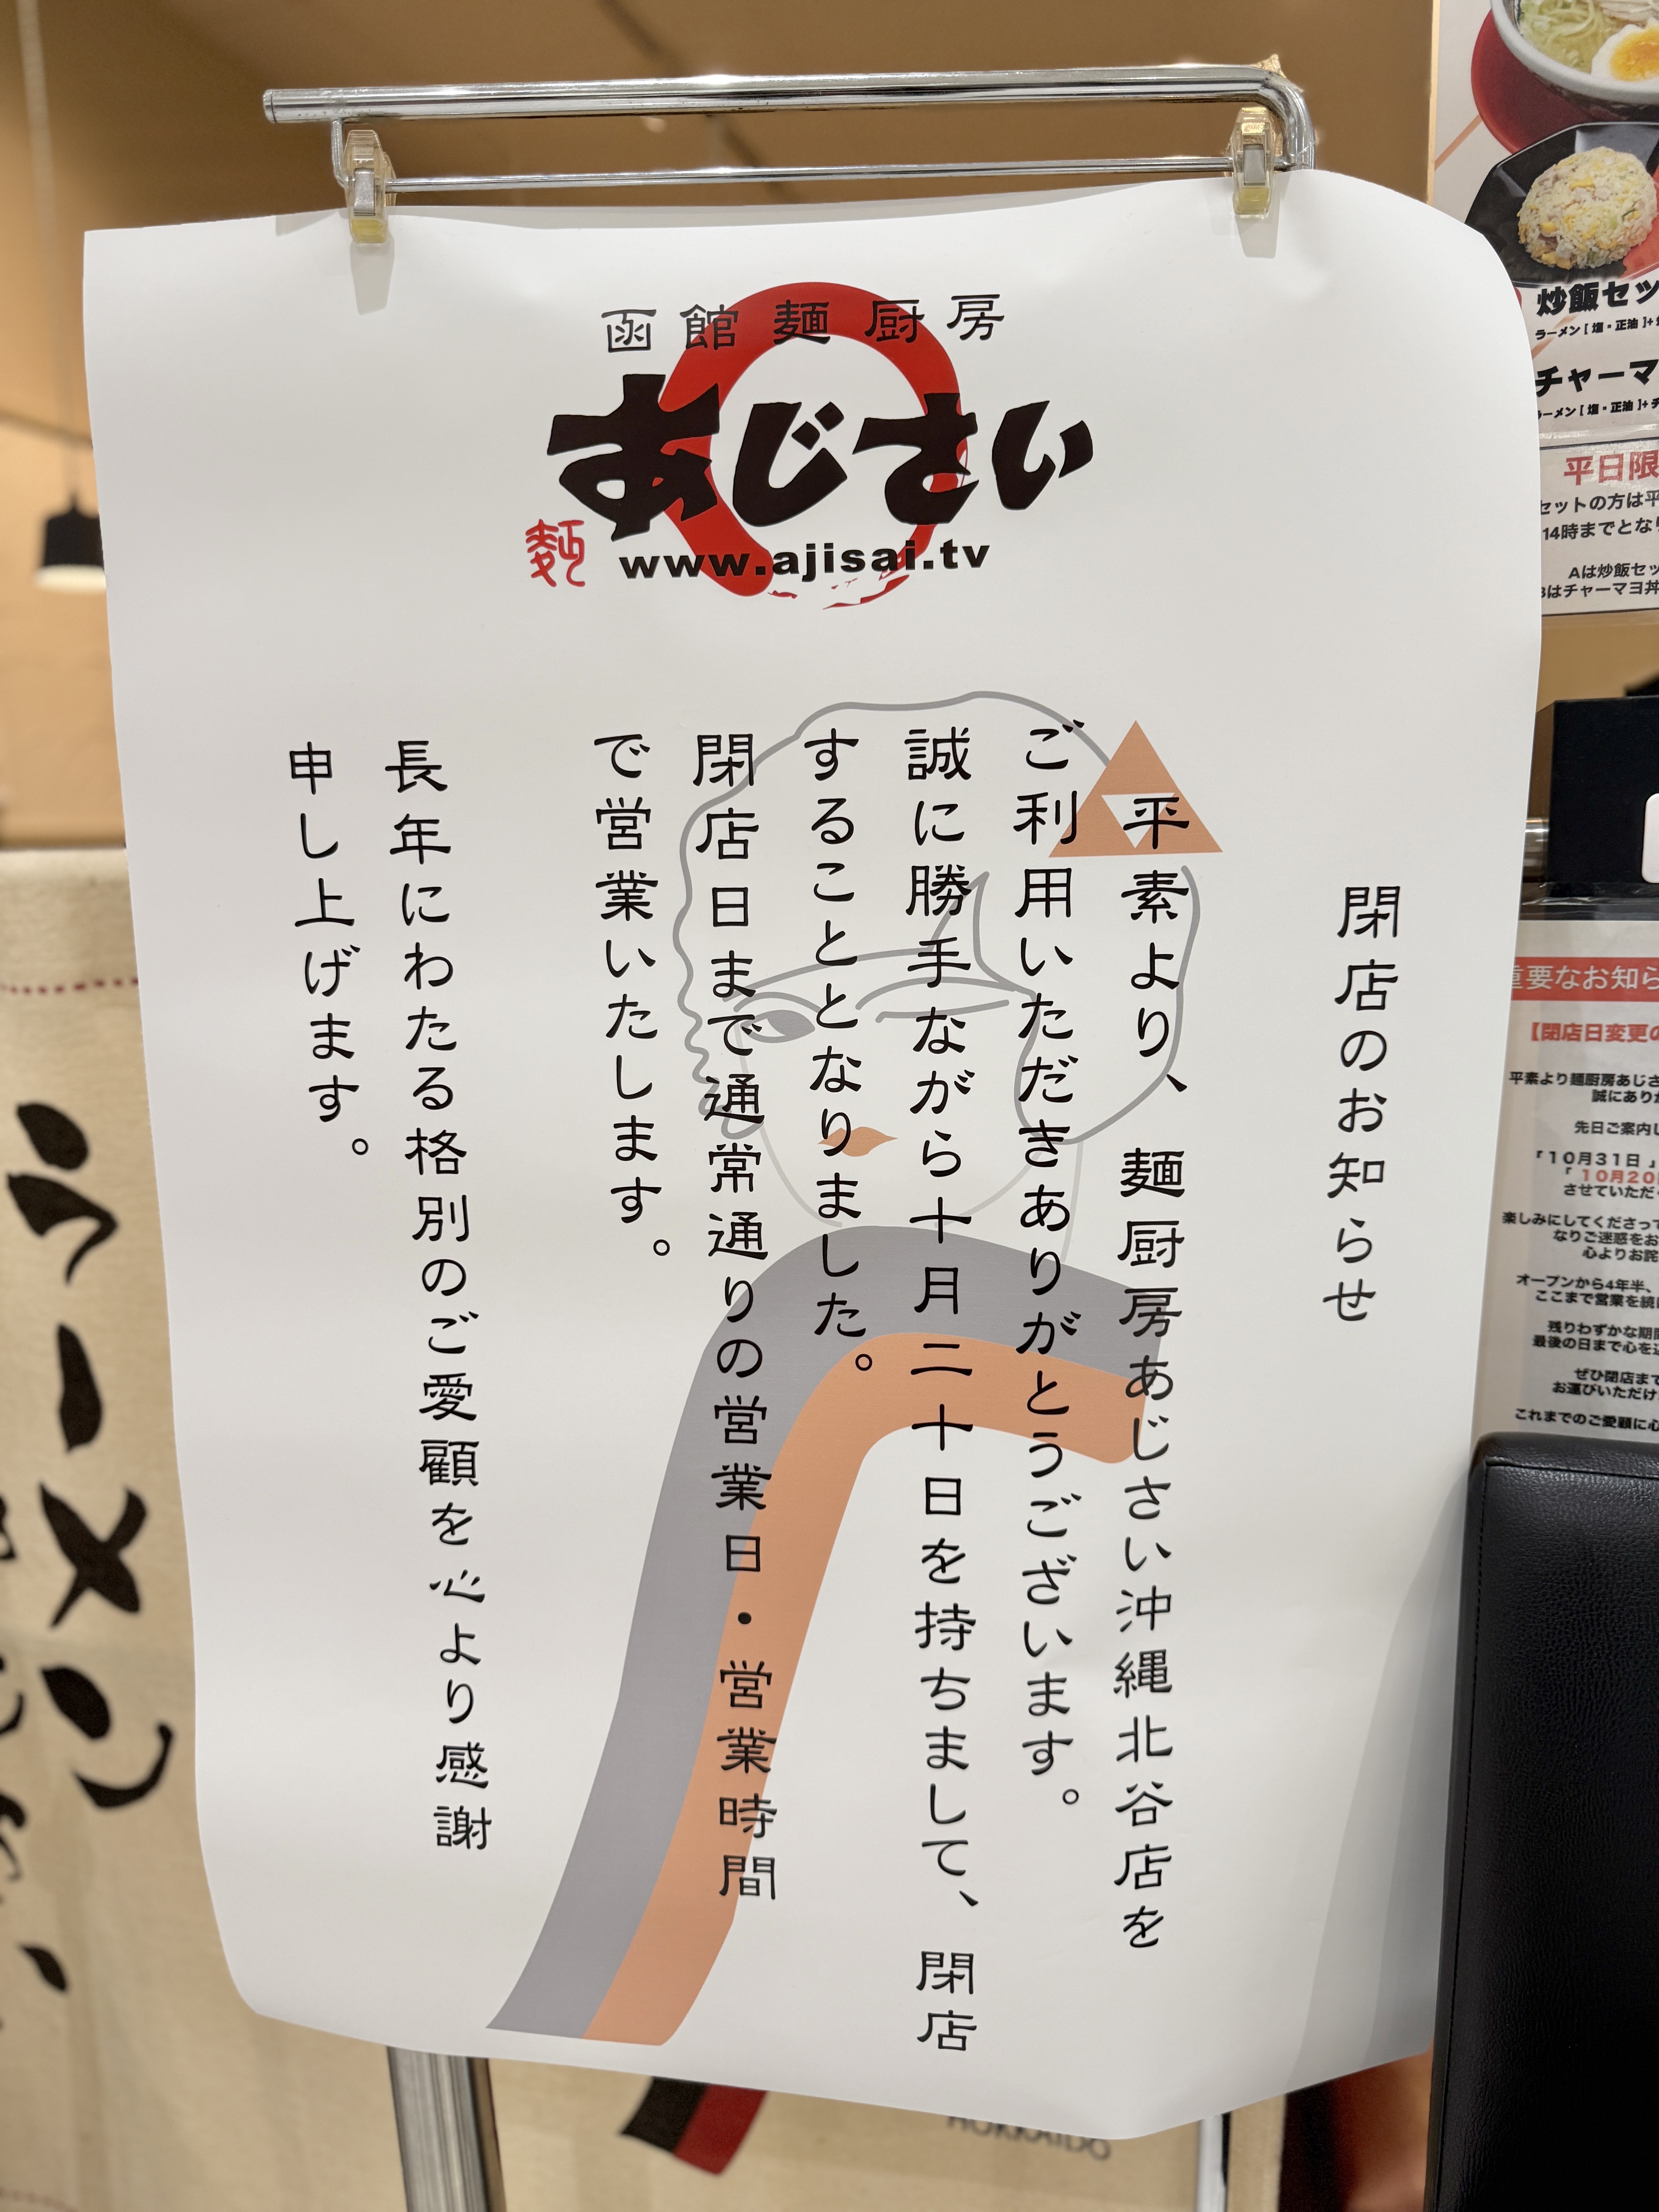 函館麺厨房
あじさい
麺
www.ajisai.tv
閉店のお知らせ
平素より、麺厨房あじさい沖縄北谷店を
ご利用いただきありがとうございます。
誠に勝手ながら十月二十日を持ちまして、閉店
することとなりました。
閉店日まで通常通りの営業日・営業時間
で営業いたします。
長年にわたる格別のご愛顧を心より感謝
申し上げます。
炒飯セッ
ラーメン [ 塩・正油 ]+
チャーマ
ーメン [ 塩・正油 ]+
平日限
セットの方は平
14時までとな
Aは炒飯セッ
はチャーマヨ丼
重要なお知ら
【閉店日変更の
平素より麺厨房あじさ
誠にありが
先日ご案内し
「10月31日 」
「 10月20
させていただ
楽しみにしてくださって
なりご迷惑をお
心よりお詫
オープンから4年半、
ここまで営業を続
残りわずかな期間
最後の日まで心を
ぜひ閉店まで
お運びいただけ
これまでのご愛顧に心
ラーメン
HOKKAIDO